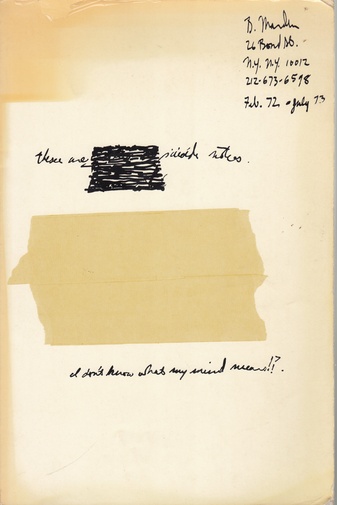 B. Marden
26 Bond St.
N.Y. N.Y. 10012
212-673-6598
Feb. 72 - July 73
these are suicide notes.
I don't know what's my mind means!!?.